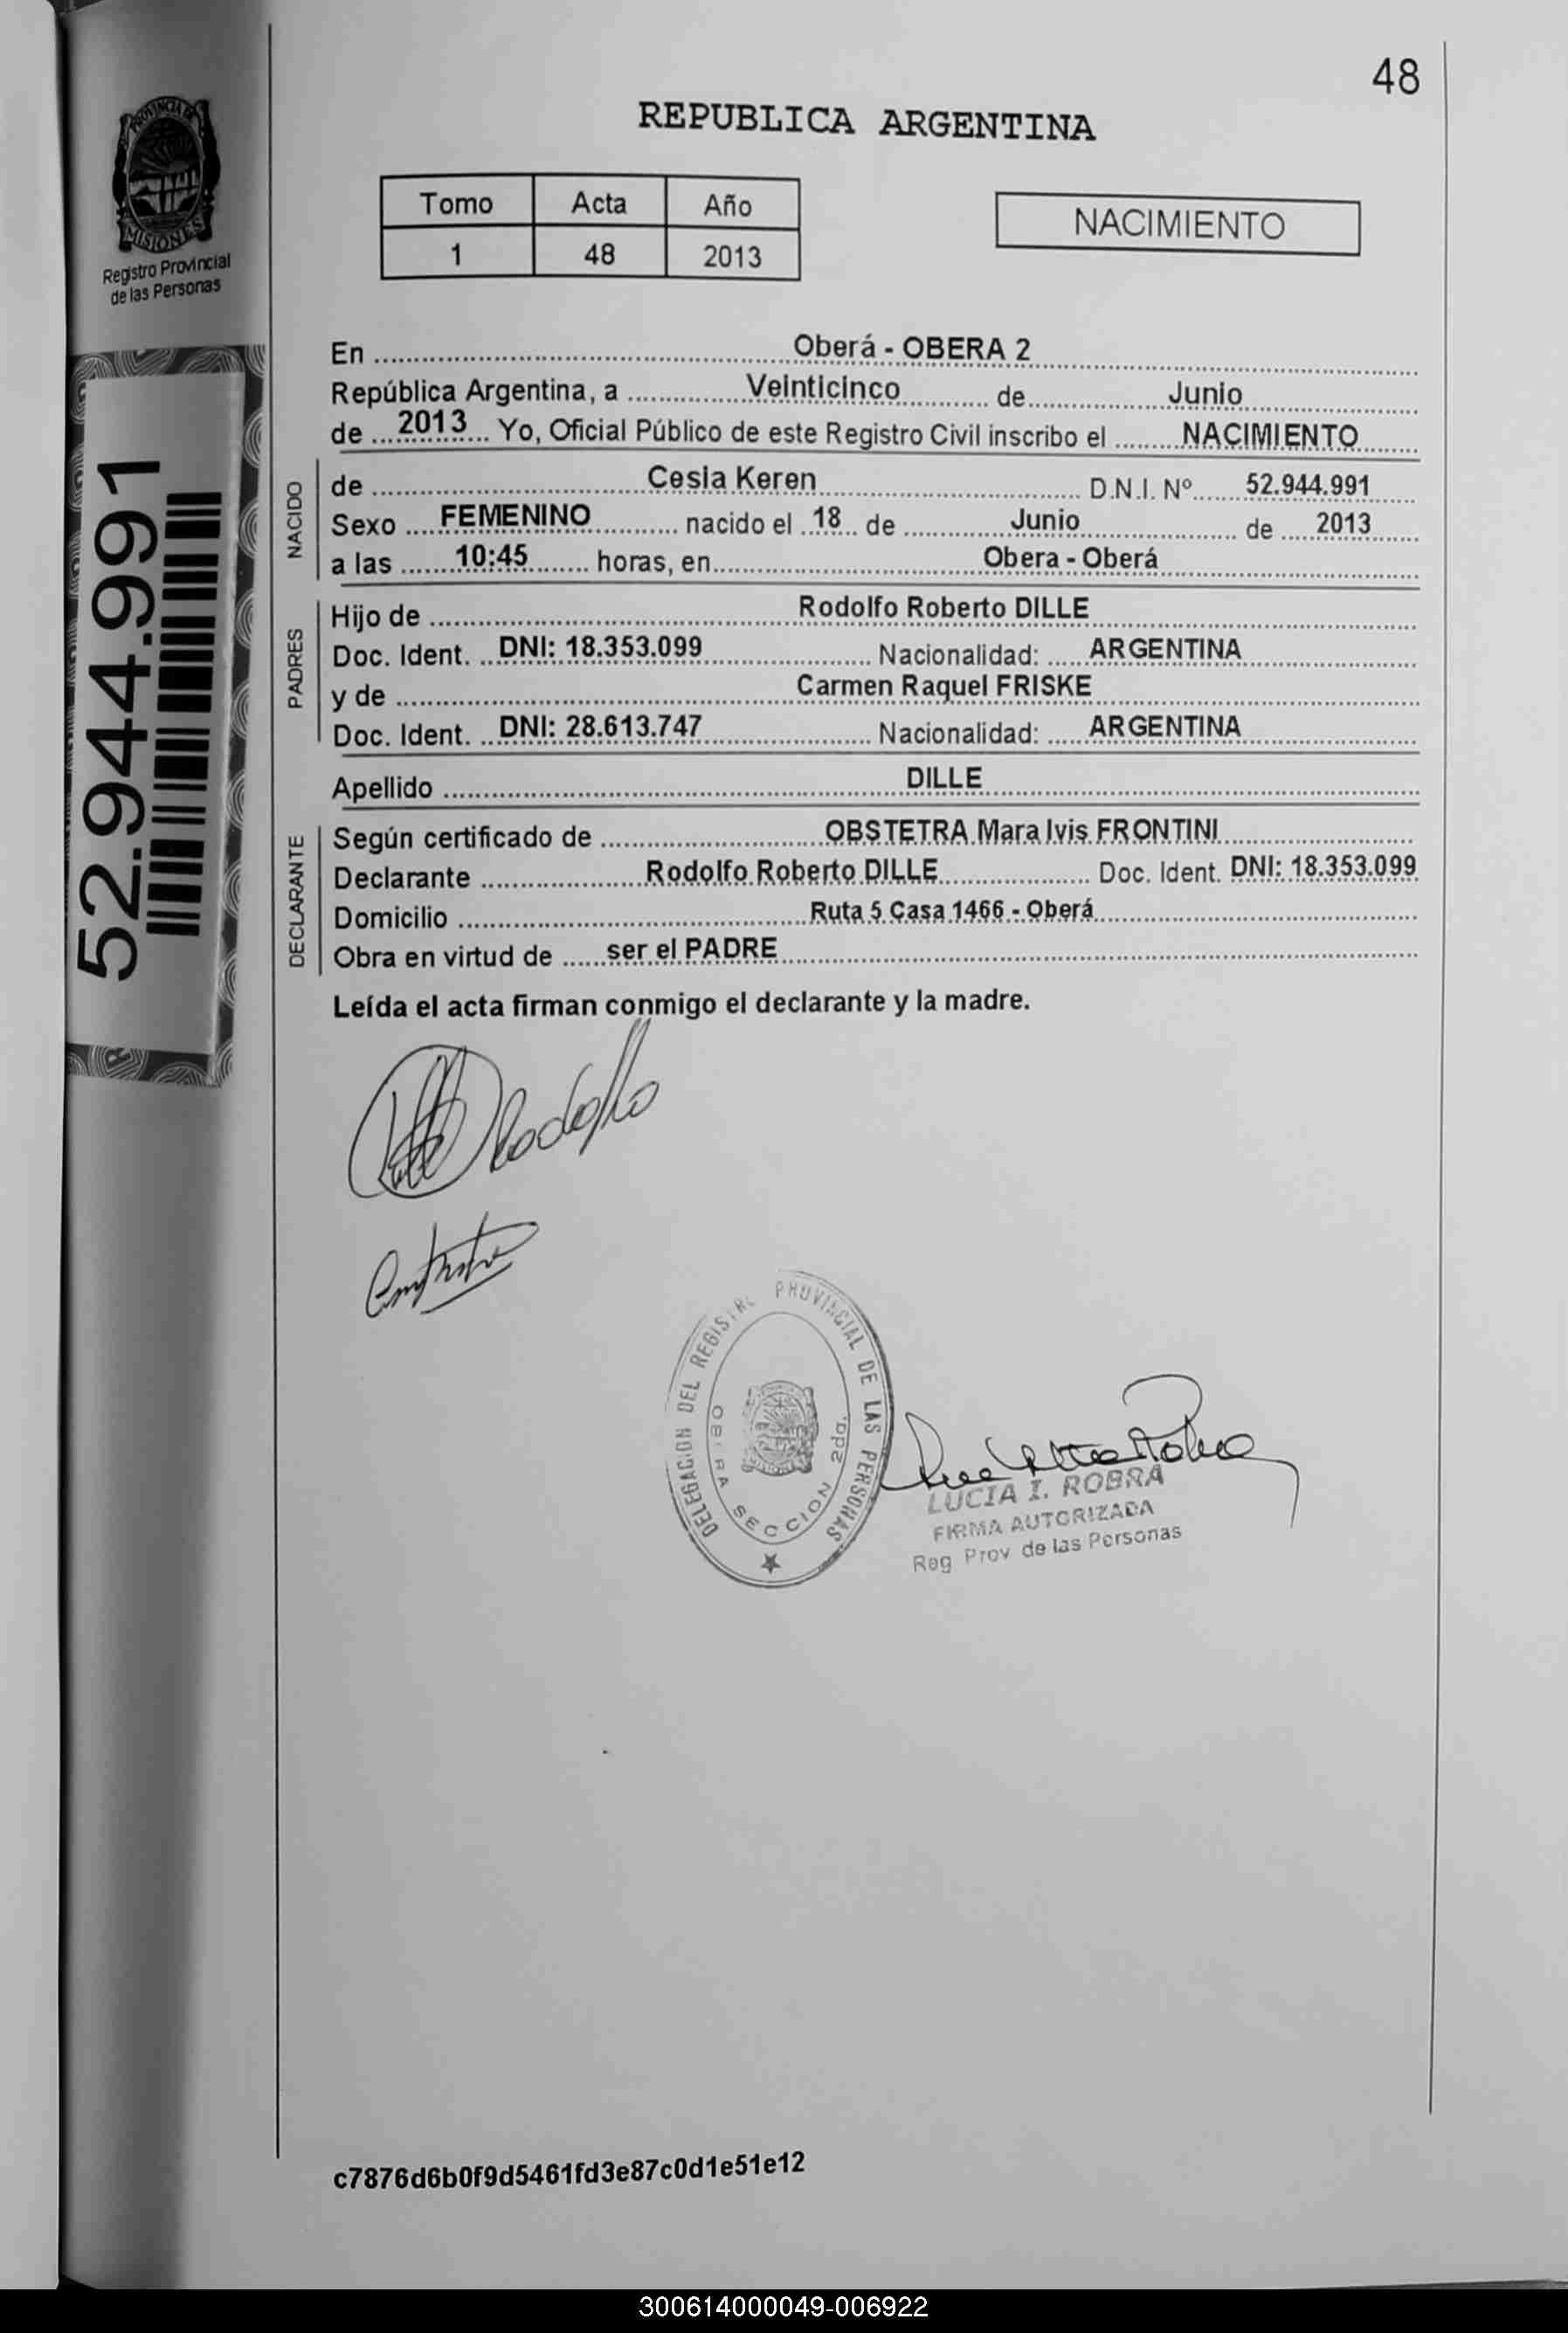 48
REPUBLICA ARGENTINA
PROVINCIA DE
MISIONES
Registro Provincial
de las Personas
Tomo Acta Año
1 48 2013
NACIMIENTO
52.944.991
En Oberá - OBERA 2
República Argentina, a Veinticinco de Junio
de 2013 Yo, Oficial Público de este Registro Civil inscribo el NACIMIENTO
NACIDO
de Cesia Keren D.N.I. Nº 52.944.991
Sexo FEMENINO nacido el 18 de Junio de 2013
a las 10:45 horas, en Obera - Oberá
PADRES
Hijo de Rodolfo Roberto DILLE
Doc. Ident. DNI: 18.353.099 Nacionalidad: ARGENTINA
y de Carmen Raquel FRISKE
Doc. Ident. DNI: 28.613.747 Nacionalidad: ARGENTINA
Apellido DILLE
DECLARANTE
Según certificado de OBSTETRA Mara Ivis FRONTINI
Declarante Rodolfo Roberto DILLE Doc. Ident. DNI: 18.353.099
Domicilio Ruta 5 Casa 1466 - Oberá
Obra en virtud de ser el PADRE
Leída el acta firman conmigo el declarante y la madre.
Rodolfo
DELEGACION DEL REGISTRO PROVINCIAL DE LAS PERSONAS
OBERA SECCION 2da.
LUCIA I. ROBRA
FIRMA AUTORIZADA
Reg Prov de las Personas
c7876d6b0f9d5461fd3e87c0d1e51e12
300614000049-006922